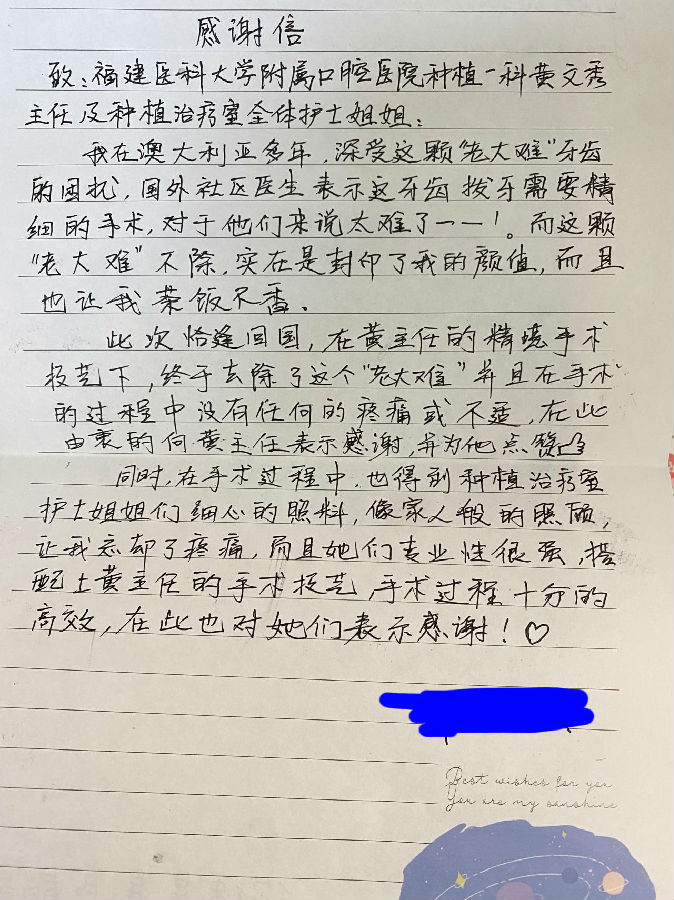 感谢信
致：福建医科大学附属口腔医院种植一科黄文秀
主任及种植治疗室全体护士姐姐：
我在澳大利亚多年，深受这颗“老大难”牙齿
的困扰，国外社区医生表示这牙齿拨牙需要精
细的手术，对于他们来说太难了——！。而这颗
“老大难”不除，实在是封印了我的颜值，而且
也让我菜饭不香．
此次恰逢回国，在黄主任的精境手术
技艺下，终于去除了这个“老大难”并且在手术
的过程中没有任何的疼痛或不适，在此
由衷的向黄主任表示感谢，并为他点赞
同时，在手术过程中，也得到种植治疗室
护士姐姐们细心的照料，像家人般的照顾，
让我忘却了疼痛，而且她们专业性很强，搭
配上黄主任的手术技艺，手术过程十分的
高效，在此也对她们表示感谢！♡
Best wishes for you
You are my sunshine